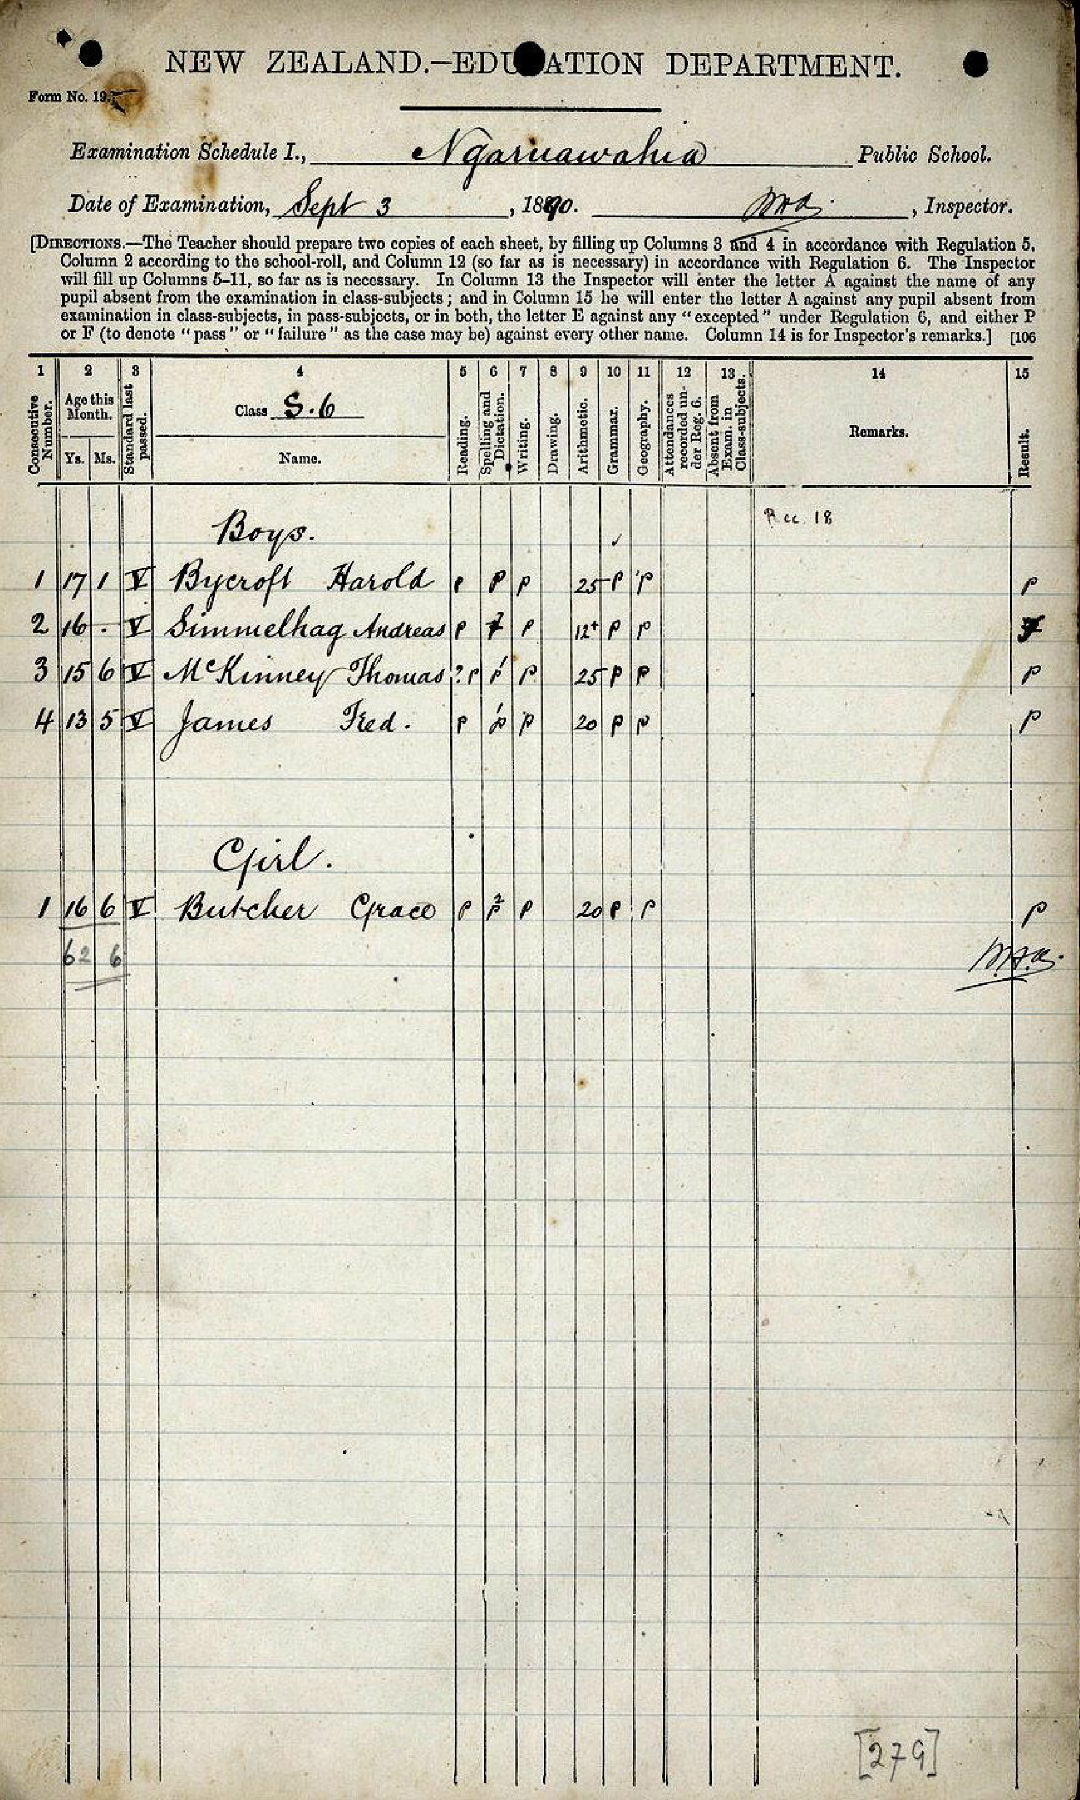 NEW ZEALAND.—EDUCATION DEPARTMENT.
Form No. 19.
Examination Schedule I., Ngaruawahia Public School.
Date of Examination, Sept 3, 1890. , Inspector.
[DIRECTIONS.—The Teacher should prepare two copies of each sheet, by filling up Columns 3 and 4 in accordance with Regulation 5,
Column 2 according to the school-roll, and Column 12 (so far as is necessary) in accordance with Regulation 6. The Inspector
will fill up Columns 5–11, so far as is necessary. In Column 13 the Inspector will enter the letter A against the name of any
pupil absent from the examination in class-subjects; and in Column 15 he will enter the letter A against any pupil absent from
examination in class-subjects, in pass-subjects, or in both, the letter E against any "excepted" under Regulation 6, and either P
or F (to denote "pass" or "failure" as the case may be) against every other name. Column 14 is for Inspector's remarks.] [106
1 2 3 4 5 6 7 8 9 10 11 12 13 14 15
Consecutive Number. Age this Month. Ys. Ms. Standard last passed. Class S.6 Name. Reading. Spelling and Dictation. Writing. Drawing. Arithmetic. Grammar. Geography. Attendances recorded under Reg. 6. Absent from Exam. in Class-subjects. Remarks. Result.
Rec. 18
Boys. ✓
1 17 1 V Bycroft Harold P P P 25 P P P
2 16 . V Simmelhag Andreas P F P 12+ P P F
3 15 6 V McKinney Thomas ?P P P 25 P P P
4 13 5 V James Fred. P P P 20 P P P
Girl.
1 16 6 V Butcher Grace P P P 20 P P P
62 6
[279]